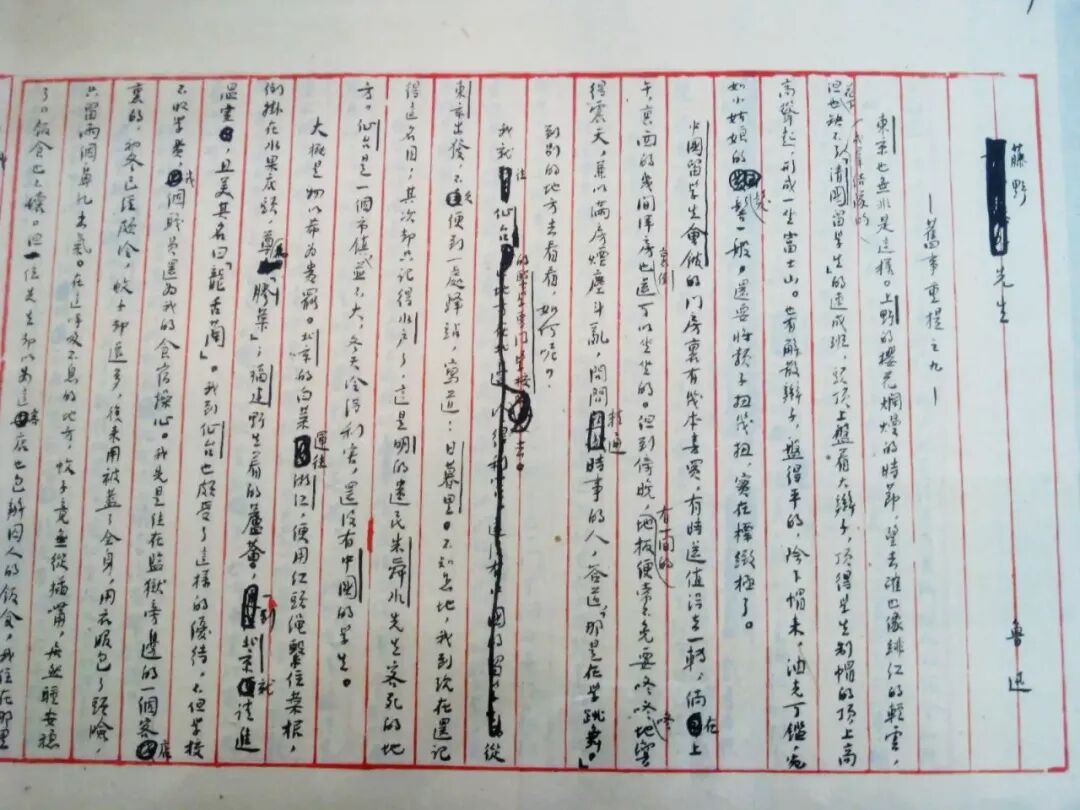 藤野先生
—舊事重提之九—
魯迅
東京也無非是這樣。上野的櫻花爛熳的時節,望去確也像緋红的輕雲,
但花下也缺不了成羣結隊的「清國留學生」的速成班,頭頂上盤着大辮子,頂得學生制帽的頂上高
高聳起,形成一坐富士山。也有解散辮子,盤得平的,除下帽來,油光可鑑,宛
如小姑娘的髮髻一般,還要將頸子扭幾扭,實在標緻極了。
中國留學生會館的门房裏有幾本書買,有時還值得去一轉,倘在上
午,裏面的幾间洋房裏倒也還可以坐坐的。但到傍晚,有一间的地板便常不免要咚咚咚地響
得震天,兼以滿房煙塵斗亂,問問精通時事的人,答道,「那是在學跳舞。」
到別的地方去看看,如何呢?
我就往仙台的醫學專门學校去。從
東京出發,不久便到一處驛站,寫道:日暮里。不知怎地,我到現在還記
得這名目,其次却只記得水户了,這是明的遺民朱舜水先生客死的地
方。仙台是一個市鎮,並不大,冬天冷得利害,還沒有中國的學生。
大概是物以希為貴罷。北京的白菜運往浙江,便用红頭繩繫住菜根,
倒掛在水果店頭,尊為「膠菜」;福建野生着的蘆薈,一到北京就請進
温室,且美其名曰「龍舌蘭」。我到仙台也頗受了這樣的優待,不但學校
不收學費,幾個職員還為我的食宿操心。我先是住在監獄旁邊的一個客店
裏的,初冬已經頗冷,蚊子却還多,後來用被蓋了全身,用衣服包了頭臉,
只留兩個鼻孔出氣。在這呼吸不息的地方,蚊子竟無從插嘴,居然睡安穩
了。飯食也不壞。但一位先生却以為這客店也包辦囚人的飯食,我住在那里